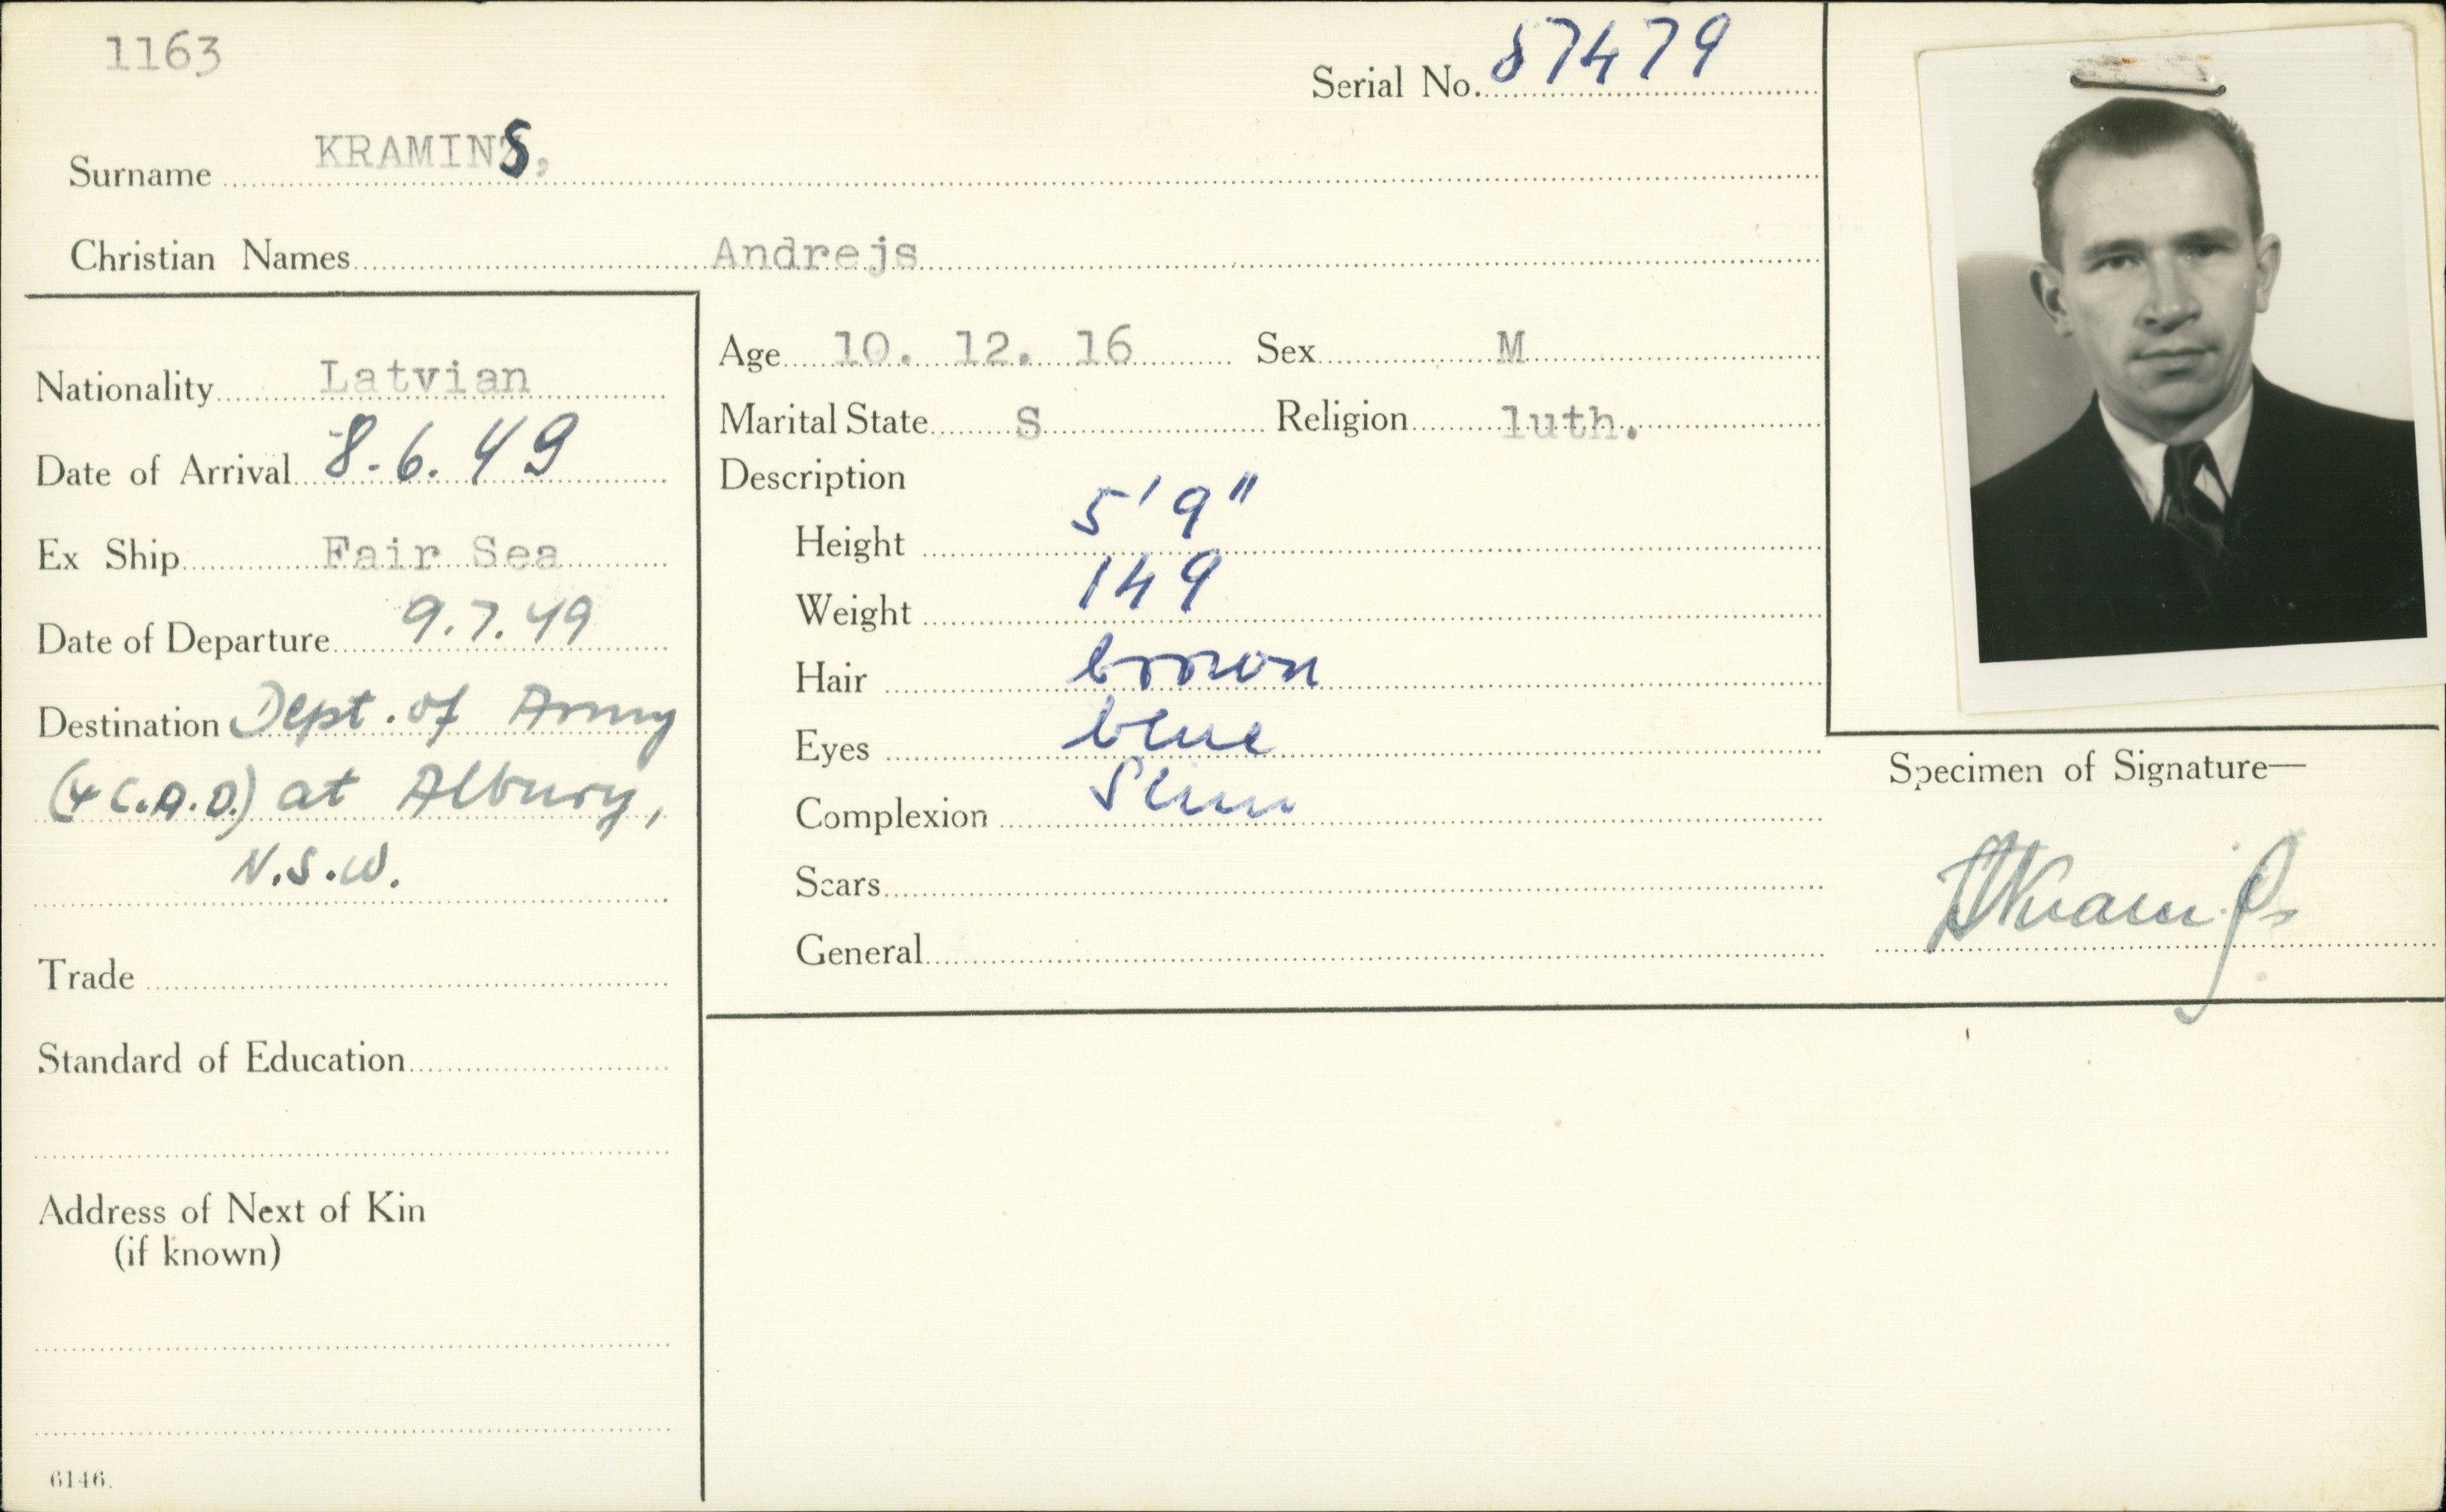 1163
Serial No. 57479
Surname KRAMINS,
Christian Names Andrejs
Nationality Latvian
Date of Arrival 8.6.49
Ex Ship Fair Sea
Date of Departure 9.7.49
Destination Dept. of Army
(4 C.A.D.) at Albury,
N.S.W.
Trade
Standard of Education
Address of Next of Kin
(if known)
6146.
Age 10. 12. 16 Sex M
Marital State S Religion luth.
Description
Height 5'9"
Weight 149
Hair brown
Eyes blue
Complexion Slim
Scars
General
Specimen of Signature—